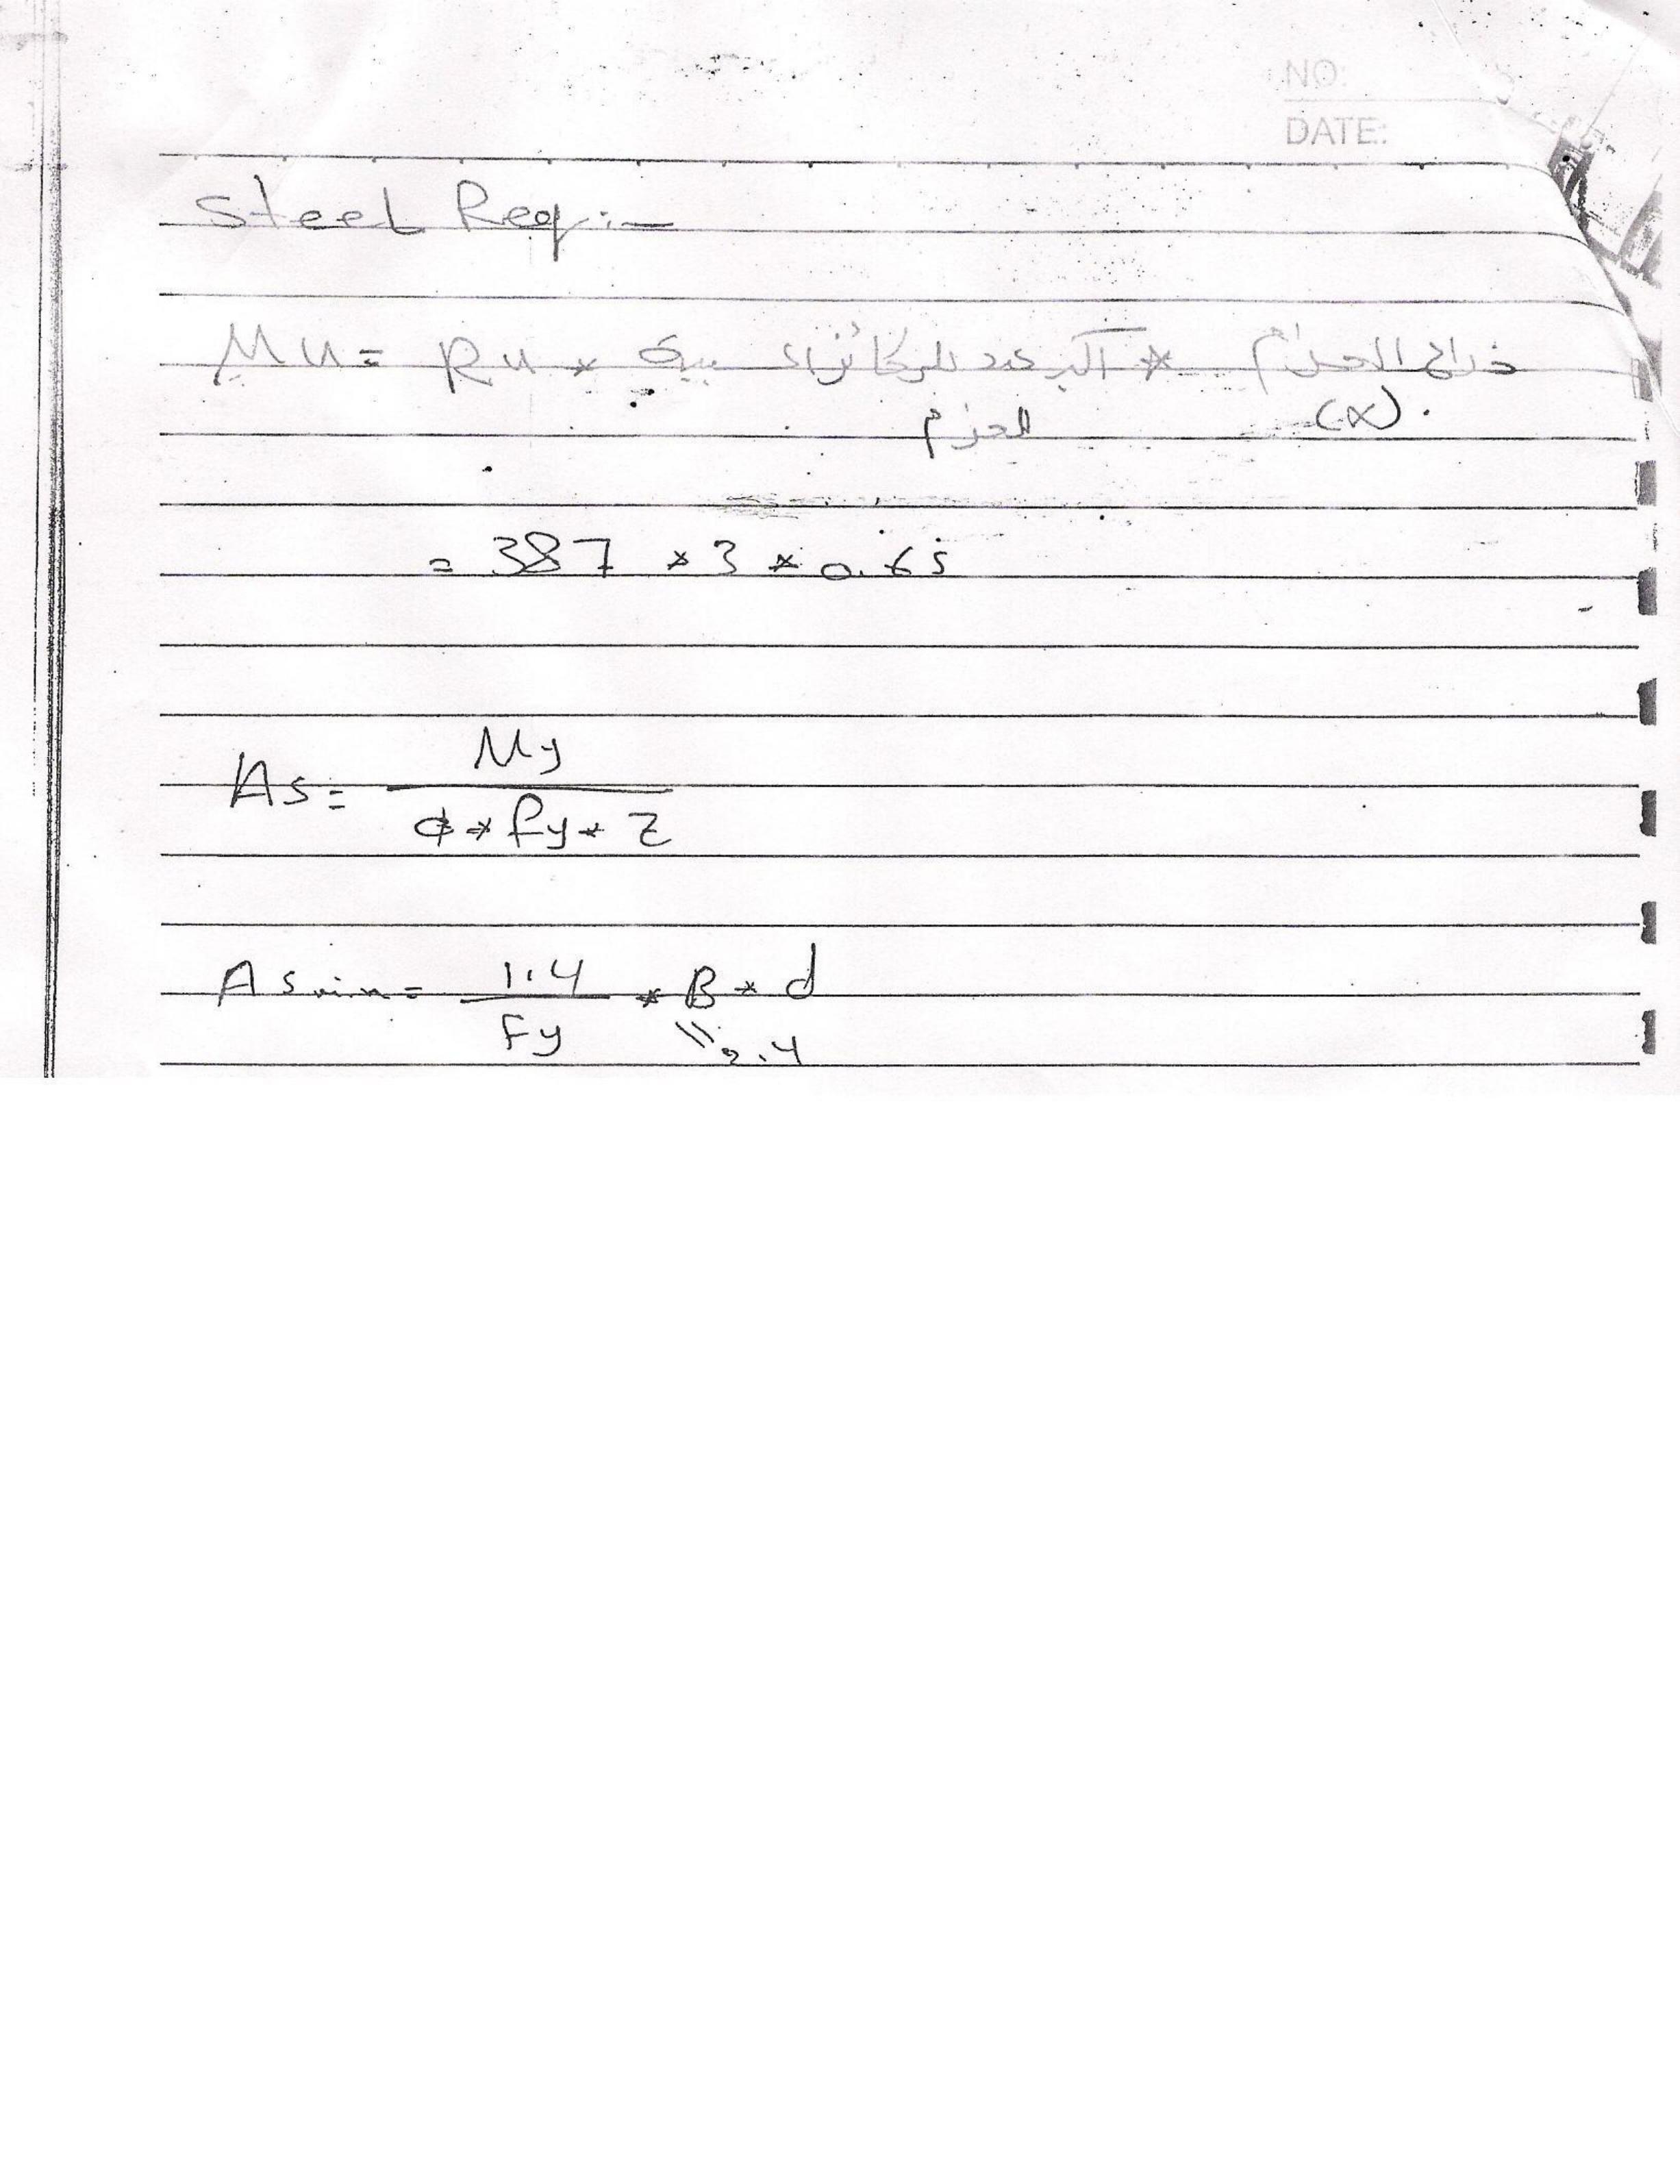 NO:
DATE:
Steel Req :-
Mu = Ru * أكبر عدد للركائز * ذراع العزم
العزم (x)
= 387 * 3 * 0.65
As = My / φ * fy * z
As min = 1.4 / Fy * B * d
= 2.4